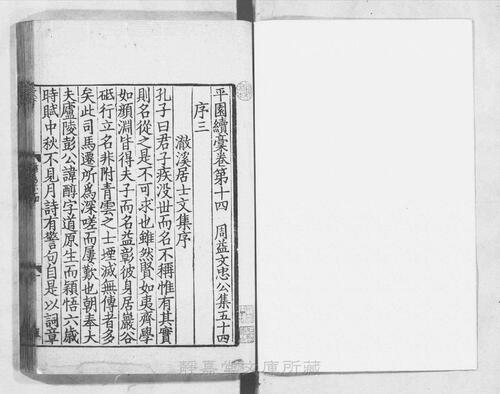 平園續稾卷第十四　周益文忠公集五十四
序三
瀓溪居士文集序
孔子曰君子疾没丗而名不稱惟有其實
則名從之是不可求也雖然賢如夷齊學
如顔淵皆得夫子而名益彰彼身居巖谷
砥行立名非附青雲之士堙滅無傳者多
矣此司馬遷所爲深嗟而屢歎也朝奉大
夫廬陵彭公諱醇字道原生而穎悟六歲
時賦中秋不見月詩有警句自是以詞章
靜嘉堂文庫所藏